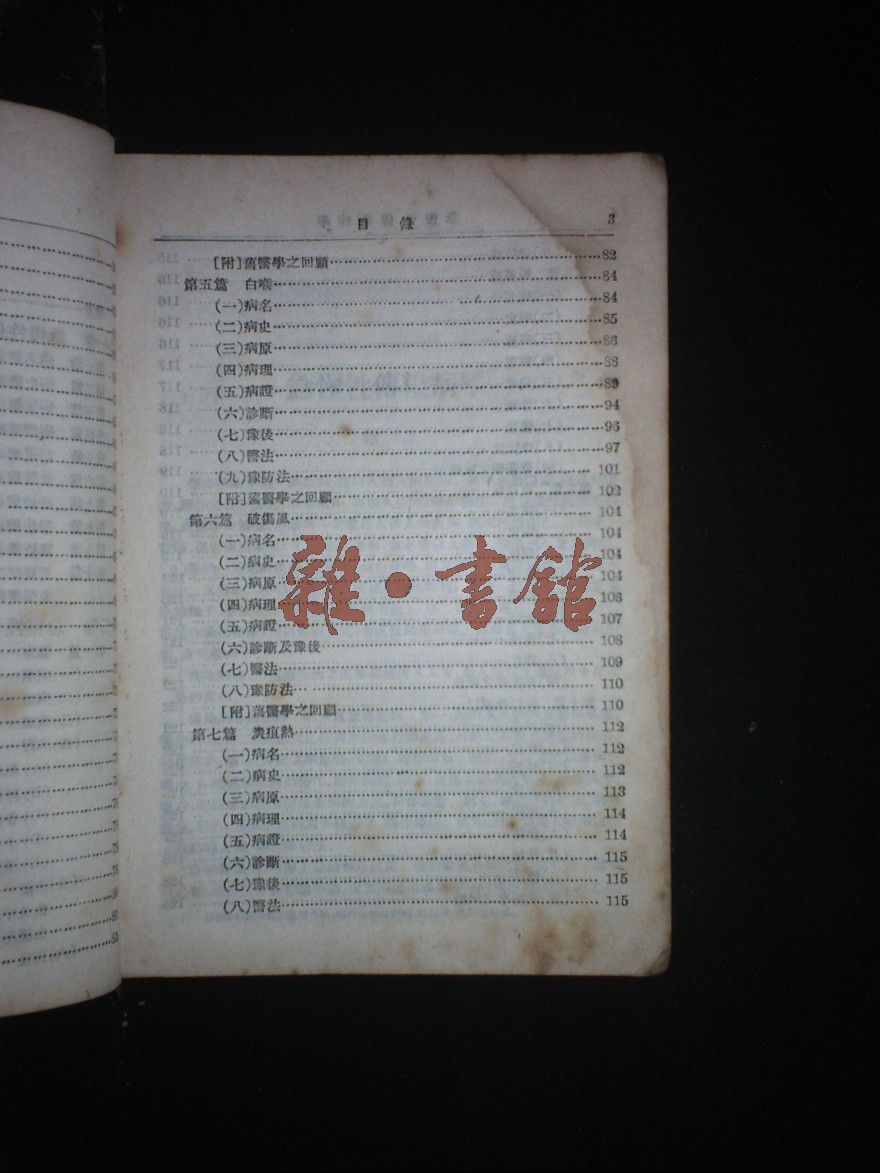 目錄 3
[附]舊醫學之回顧 82
第五篇 白喉 84
(一)病名 84
(二)病史 85
(三)病原 86
(四)病理 88
(五)病證 89
(六)診斷 94
(七)豫後 96
(八)醫法 97
(九)豫防法 101
[附]舊醫學之回顧 102
第六篇 破傷風 104
(一)病名 104
(二)病史 104
(三)病原 104
(四)病理 106
(五)病證 107
(六)診斷及豫後 108
(七)醫法 109
(八)豫防法 110
[附]舊醫學之回顧 110
第七篇 炭疽熱 112
(一)病名 112
(二)病史 112
(三)病原 113
(四)病理 114
(五)病證 114
(六)診斷 115
(七)豫後 115
(八)醫法 115
雜·書館